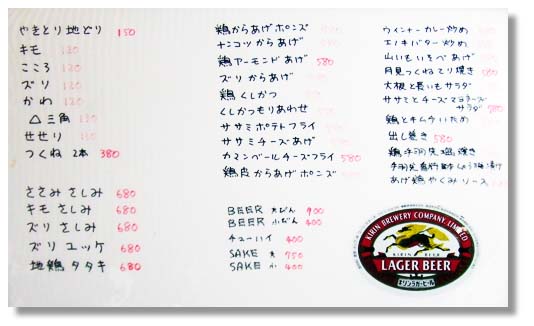 やきとり 地どり 150
キモ 120
こころ 120
ズリ 120
かわ 120
△三角 120
せせり
つくね 2本 380
ささみ さしみ 680
キモ さしみ 680
ズリ さしみ 680
ズリ ユッケ 680
地鶏 タタキ 680
鶏からあげポンズ
ナンコツ からあげ
鶏アーモンドあげ 580
ズリ からあげ
鶏 くしかつ
くしかつもりあわせ
ササミ ポテトフライ
ササミチーズあげ
カマンベールチーズフライ 580
鶏皮からあげポンズ
BEER 大びん 900
BEER 小びん 400
チューハイ 400
SAKE 大 750
SAKE 小 400
ウインナーカレー炒め
エノキバター炒め
山いも いそべあげ
月見つくね てり焼き
大根と長いもサラダ
ササミとチーズマヨネーズ
サラダ
鶏とキムチいため
出し巻き 580
鶏手羽先塩焼き
あげ鶏やくみソース
KIRIN BREWERY COMPANY, LIMITED
KIRIN BEER
LAGER BEER
キリンラガービール